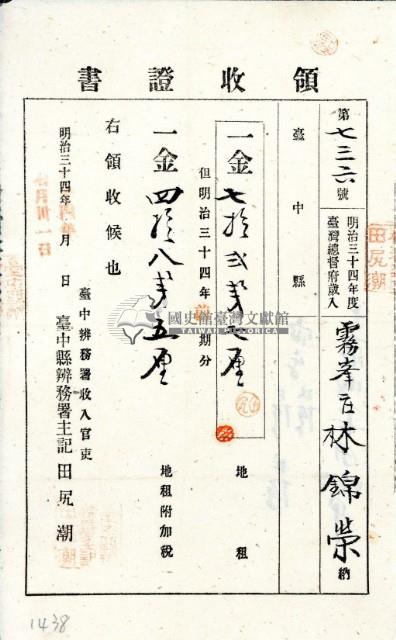 領收證書
第七三六號
明治三十四年度
臺灣總督府歲入
霧峯庄林錦榮納
臺中縣
一金七拾弐錢七厘 地租
但明治三十四年前期分
一金四拾八錢五厘 地租附加税
右領收候也
明治三十四年 月 日
臺中辨務署收入官吏
臺中縣辨務署主記田尻潮
國史館臺灣文獻館
TAIWAN HISTORICA
田尻潮
1438